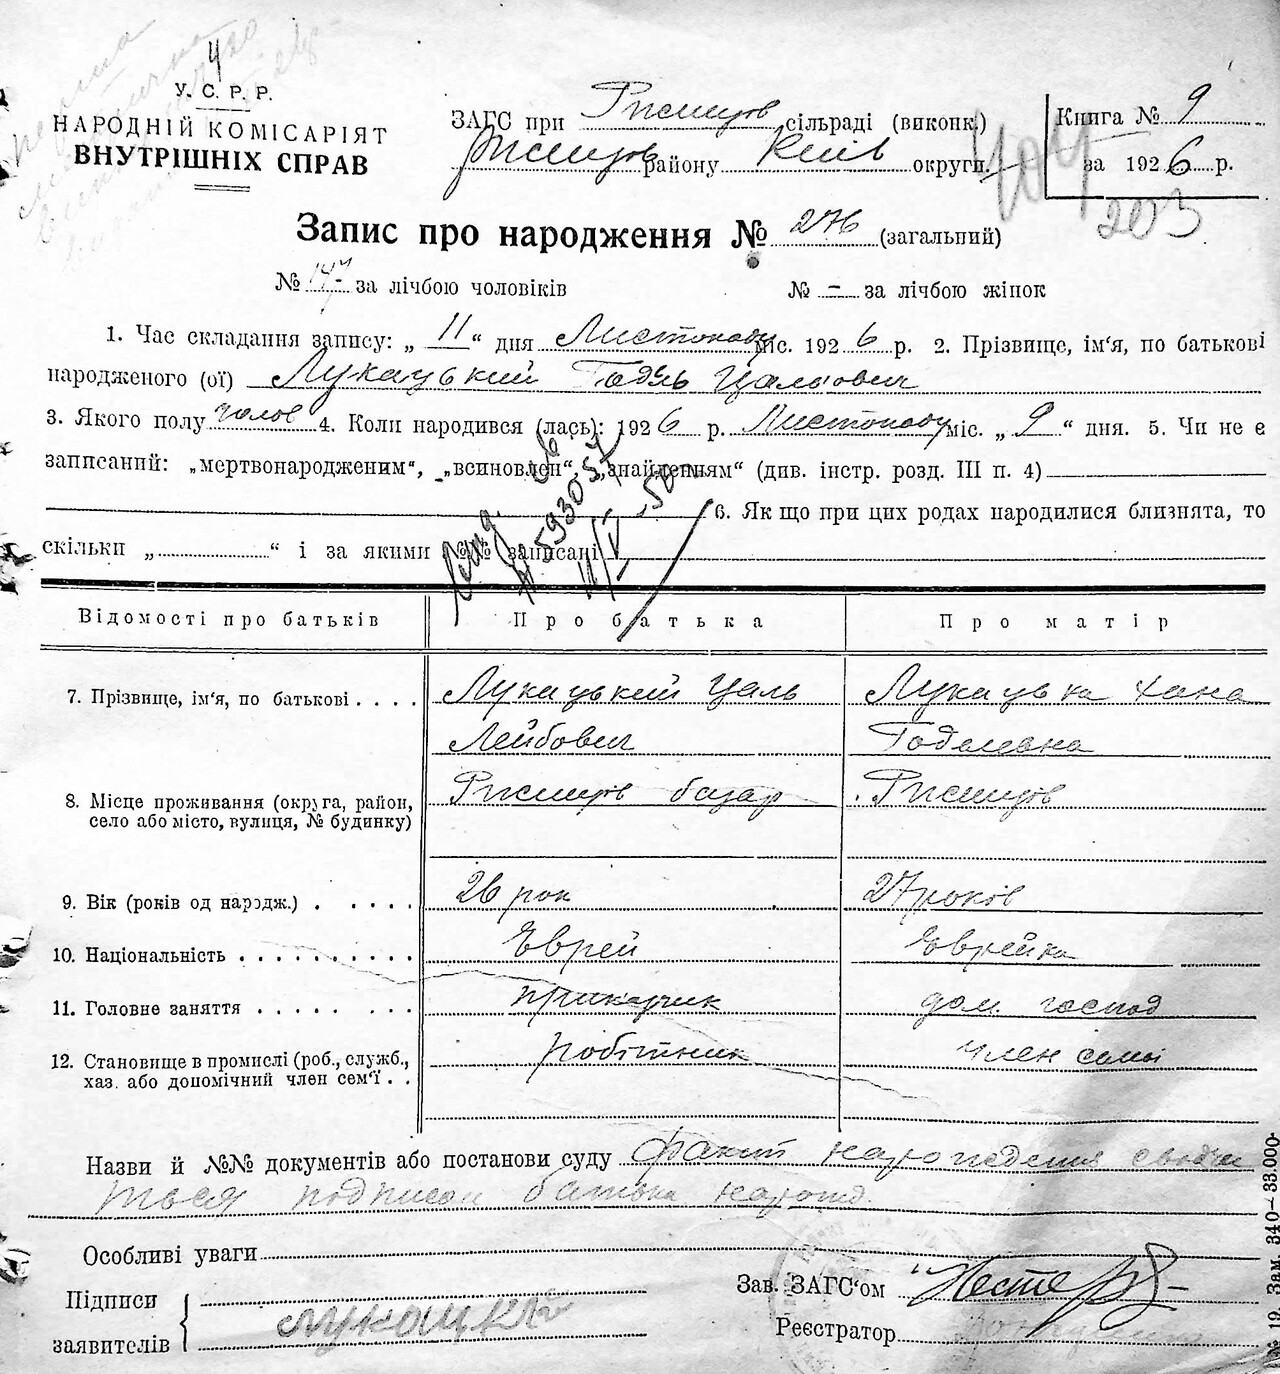 4
У. С. Р. Р.
НАРОДНІЙ КОМІСАРІЯТ
ВНУТРІШНІХ СПРАВ
ЗАГС при Ржищев сільраді (виконк.)
Ржищев району Київ округи.
Книга № 9
за 1926 р.
104
203
Запис про народження № 276 (загальний)
№ 147 за лічбою чоловіків № - за лічбою жінок
1. Час складання запису: „ 11 “ дня Листопаду міс. 1926 р. 2. Прізвище, ім‘я, по батькові
народженого (ої) Лукацький Годль Цальович
3. Якого полу чолов 4. Коли народився (лась): 1926 р. Листопаду міс. „ 9 “ дня. 5. Чи не є
записаний: „мертвонародженим“, „всиновлен“, „знайденням“ (див. інстр. розд. III п. 4)
6. Як що при цих родах народилися близнята, то
скільки „ “ і за якими №№ записані
593057
Відомості про батьків Про батька Про матір
7. Прізвище, ім‘я, по батькові . . . . Лукацький Цаль Лукацька Хана
Лейбович Годелевна
8. Місце проживання (округа, район, Ржищев базар Ржищев
село або місто, вулиця, № будинку)
9. Вік (років од народж.) . . . . . 26 рок 27 років
10. Національність . . . . . . . . . . Еврей Еврейка
11. Головне заняття . . . . . . . . . приказчик дом. господ
12. Становище в промислі (роб., служб., робітник член семьі
хаз. або допомічний член сем‘ї . .
Назви й №№ документів або постанови суду факт народження сводчи
ться подписом батька народж.
Особливі уваги
Підписи
заявителів Лукацкий
Зав. ЗАГС‘ом
Реєстратор
№ 19. Зам. 340—33.000